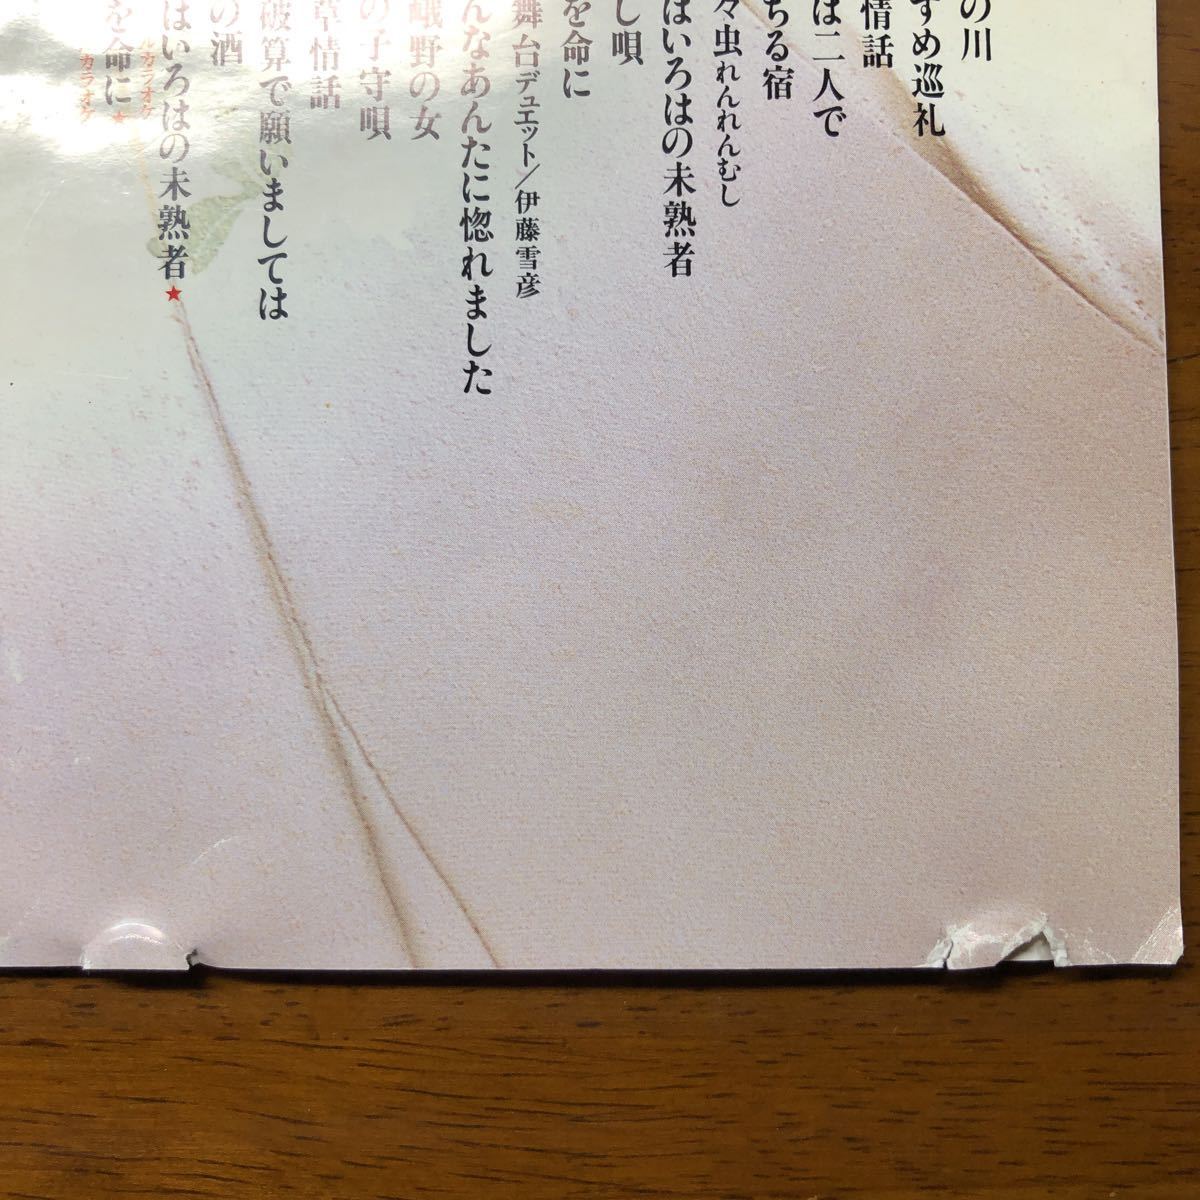 の川
すめ巡礼
情話
は二人で
ちる宿
々虫れんれんむし
はいろはの未熟者
し唄
を命に
舞台デュエット／伊藤雪彦
んなあんたに惚れました
峨野の女
の子守唄
草情話
破算で願いましては
の酒
はいろはの未熟者★
ルカラオケ
を命に★
カラオケ